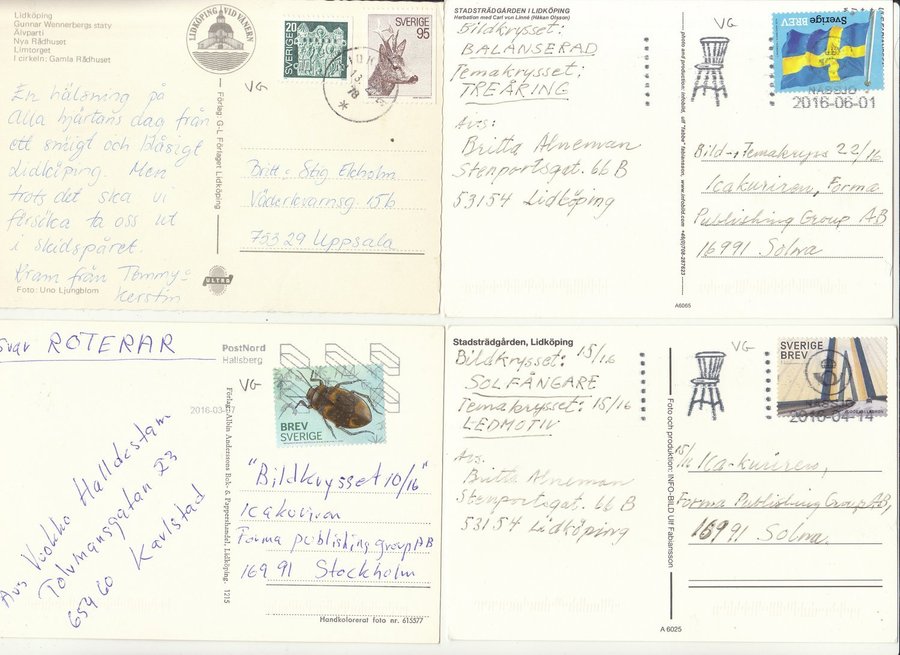 Lidköping
Gunnar Wennerbergs staty
Älvparti
Nya Rådhuset
Limtorget
I cirkeln: Gamla Rådhuset
LIDKÖPING VID VÄNERN
SVERIGE 20
SVERIGE
95
VG
En hälsning på
Alla hjärtans dag från
ett snöigt och blåsigt
Lidköping. Men
trots det ska vi
försöka ta oss ut
i skidspåret.
Kram från Tommy o
Kerstin
Foto: Uno Ljungblom
Förlag: G-L Förlaget Lidköping
ULTRA
Britt o Stig Ekholm
Väderkvarnsg. 15 b
753 29 Uppsala
STADSTRÄDGÅRDEN I LIDKÖPING
Herbation med Carl von Linné (Håkan Olsson)
Bildkrysset:
BALANSERAD
Temakrysset:
TREÅRING
Avs:
Britta Alneman
Stenportsgat. 66 B
53154 Lidköping
A6065
VG
Sverige BREV
NÄSSJÖ
2016-06-01
Bild-, Temakryss 22/16
Icakuriren, Forma
Publishing Group AB
16991 Solna
Svar ROTERAR
PostNord
Hallsberg
VG
2016-03-17
BREV
SVERIGE
Avs Viokko Halldestam
Tolvmansgatan 23
65460 Karlstad
Förlag: Albin Anderssons Bok- & Pappershandel, Lidköping. 1215
"Bildkrysset 10/16"
Icakuriren
Forma publishing group AB
169 91 Stockholm
Handkolorerat foto nr. 615577
Stadsträdgården, Lidköping
Bildkrysset: 15/16
SOLFÅNGARE
Temakrysset: 15/16
LEDMOTIV
Avs.
Britta Alneman
Stenportsgat. 66 B
53154 Lidköping
A 6025
Foto och produktion: INFO-BILD Ulf Fabiansson
VG
SVERIGE
BREV
NÄSSJÖ
2016-04-14
15/16 Ica-kuriren,
Forma Publishing Group AB,
16991 Solna.